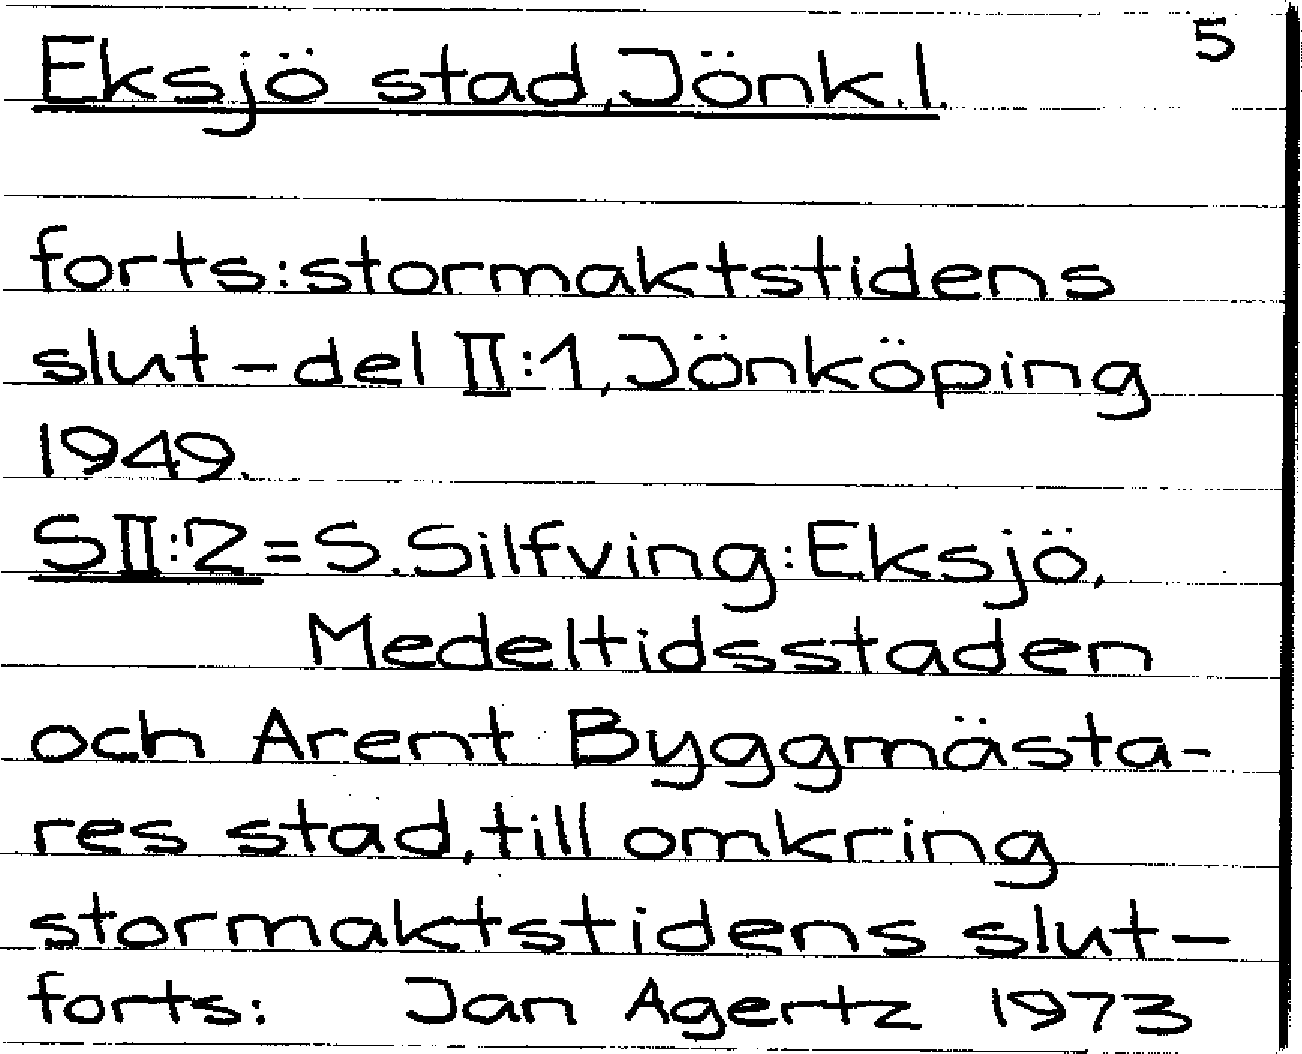 5
Eksjö stad, Jönk.l.
forts: stormaktstidens
slut – del II:1, Jönköping
1949.
SII:2 = S. Silfving: Eksjö,
Medeltidsstaden
och Arent Byggmästa-
res stad, till omkring
stormaktstidens slut –
forts: Jan Agertz 1973